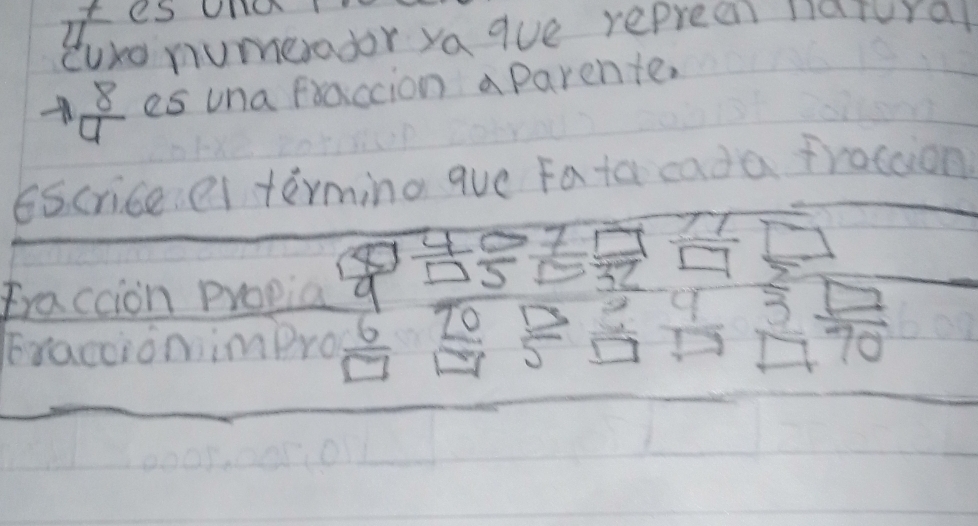 es una
cuyo numerador ya que repreen natural
→ 8/4 es una fraccion aparente.
Escribe el término que Fa ta cada fraccion
Fracción propia □/9 4/□ □/5 7/□ □/32 11/□ □/2
Fracción impro 6/□ 10/□ □/5 □ 9/□ 3/□ □/10